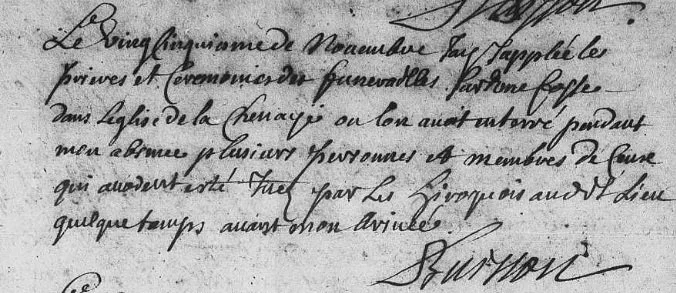 Le vingcinquiesme de Novembre Jay Supplée les
prieres et Ceremonies des funerailles Sur Une fosse
dans Leglise de la Chenaye ou lon avoit enterré pendant
mon absence plusieurs personnes et membres de Ceux
qui avoient esté Tuez par Les Hiroquois audit Lieu
quelque temps avant mon Arivée